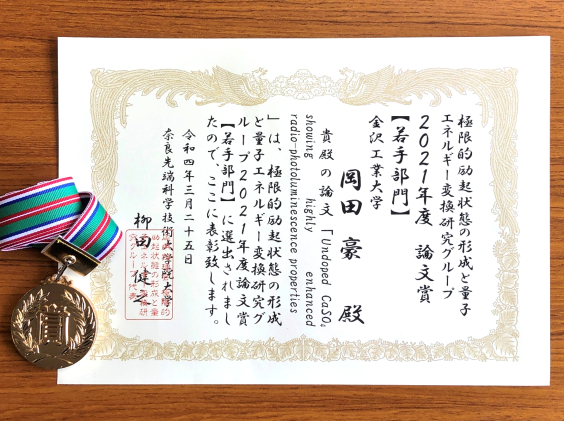 極限的励起状態の形成と量子
エネルギー変換研究グループ
2021年度 論文賞
【若手部門】
金沢工業大学
岡田 豪 殿
貴殿の論文「Undoped CaSO₄
showing highly enhanced
radio-photoluminescence properties
」は、極限的励起状態の形成
と量子エネルギー変換研究グ
ループ2021年度論文賞
【若手部門】に選出されまし
たので、ここに表彰致します。
令和四年三月二十五日
奈良先端科学技術大学院大学
柳田 健之
賞